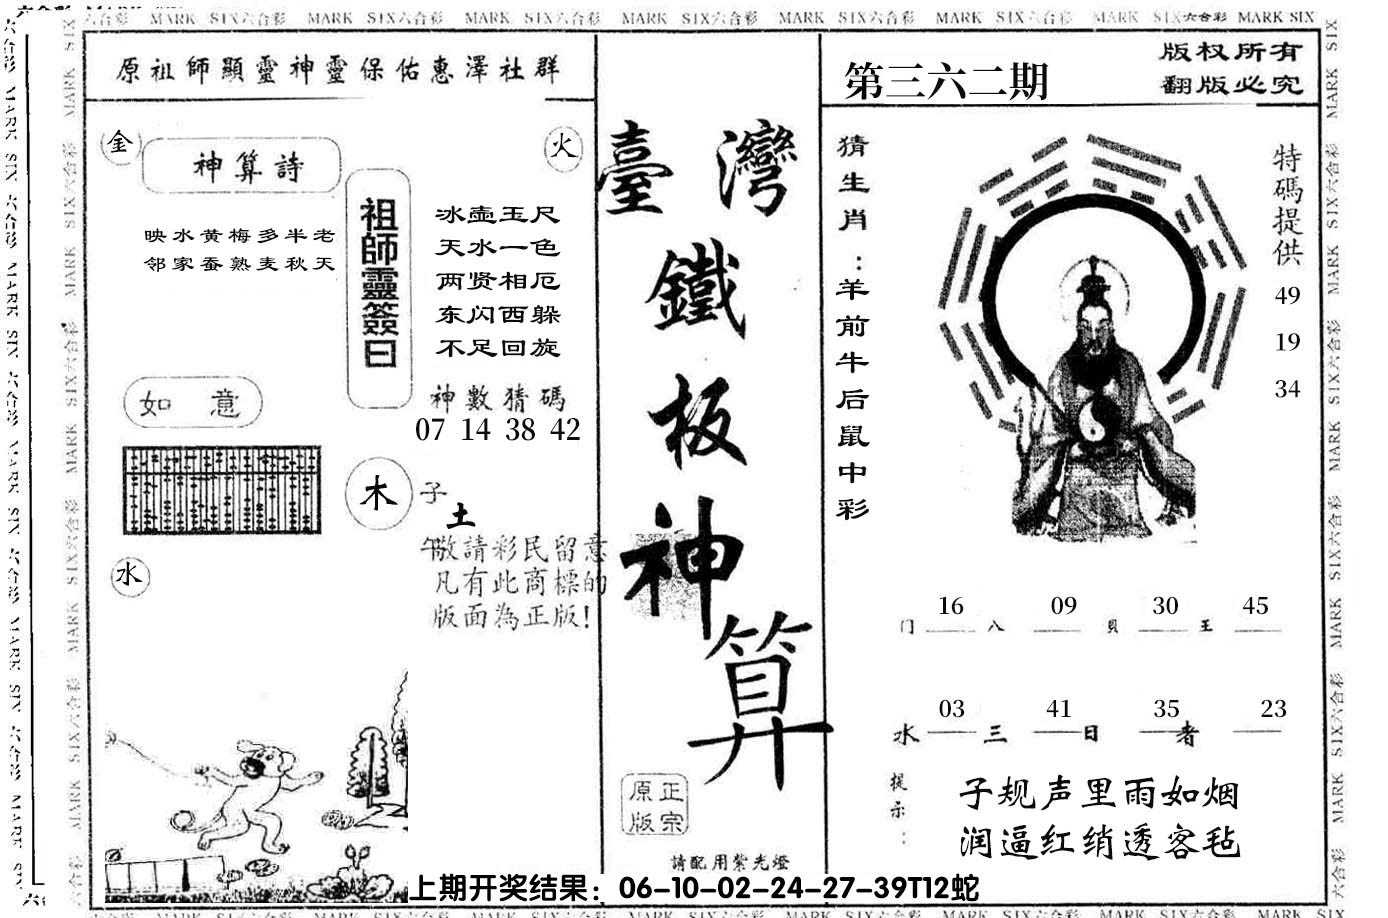 MARK SIX六合彩 MARK SIX六合彩 MARK SIX六合彩 MARK SIX六合彩 MARK SIX六合彩 MARK SIX六合彩 MARK SIX六合彩 MARK SIX
原祖師顯靈神靈保佑惠澤社群
金
神算詩
火
映水黄梅多半老
邻家蚕熟麦秋天
祖師靈簽曰
冰壶玉尺
天水一色
两贤相厄
东闪西躲
不足回旋
神數猜碼
07 14 38 42
如意
木
子
土
午
敬請彩民留意
凡有此商標的
版面為正版!
水
臺灣
鐵
板
神
算
正宗
原版
請配用紫光燈
第三六二期
版权所有
翻版必究
猜生肖:羊前牛后鼠中彩
特碼提供
49
19
34
16 09 30 45
门 八 貝 王
03 41 35 23
水 三 日 者
提示:
子规声里雨如烟
润逼红绡透客毡
上期开奖结果：06-10-02-24-27-39T12蛇